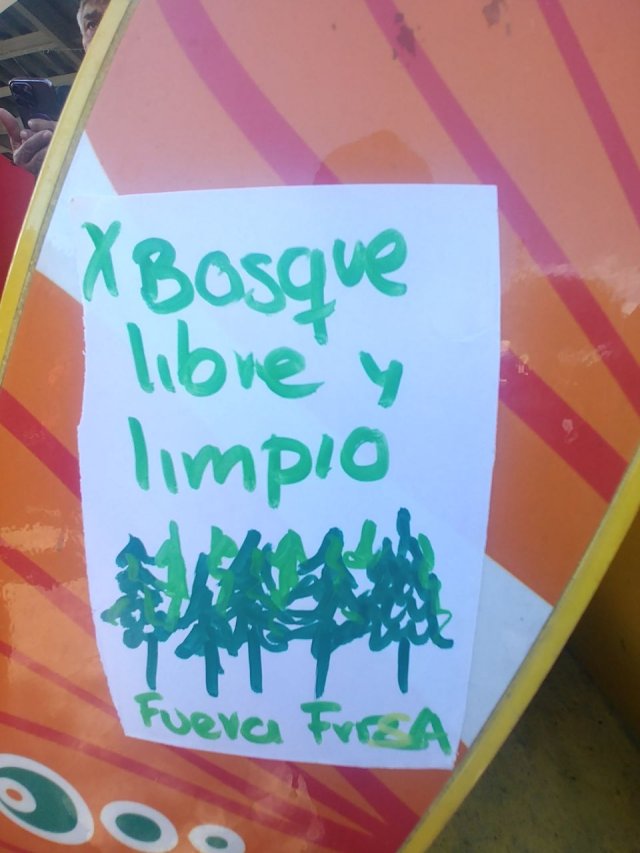 X Bosque
libre y
limpio
Fuera FrrSA